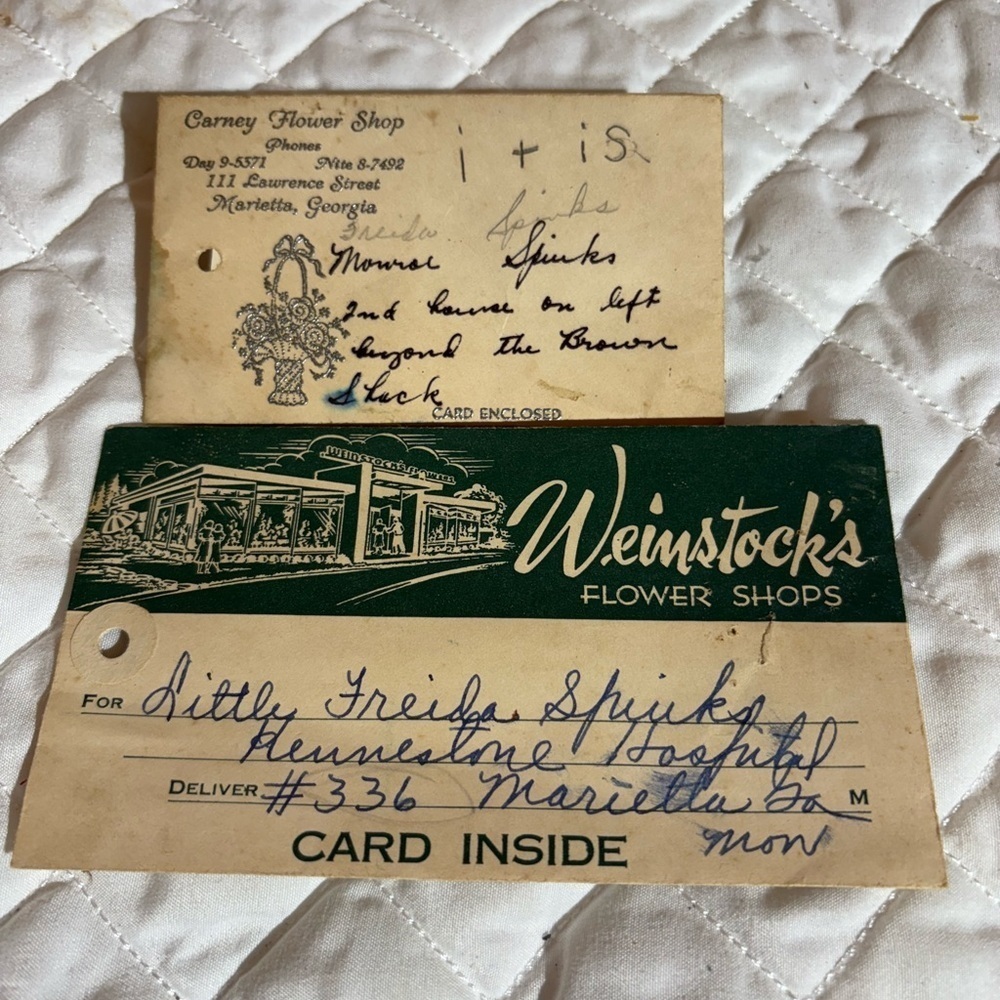 Carney Flower Shop
Phones
Day 9-5571 Nite 8-7492
111 Lawrence Street
Marietta, Georgia
i + is
Freida Spinks
Monroe Spinks
2nd house on left
beyond the Brown
Shack
CARD ENCLOSED
WEINSTOCK'S FLOWERS
Weinstock's
FLOWER SHOPS
FOR Little Freida Spinks
Kennestone Hospital
DELIVER #336 Marietta Ga M
mon
CARD INSIDE